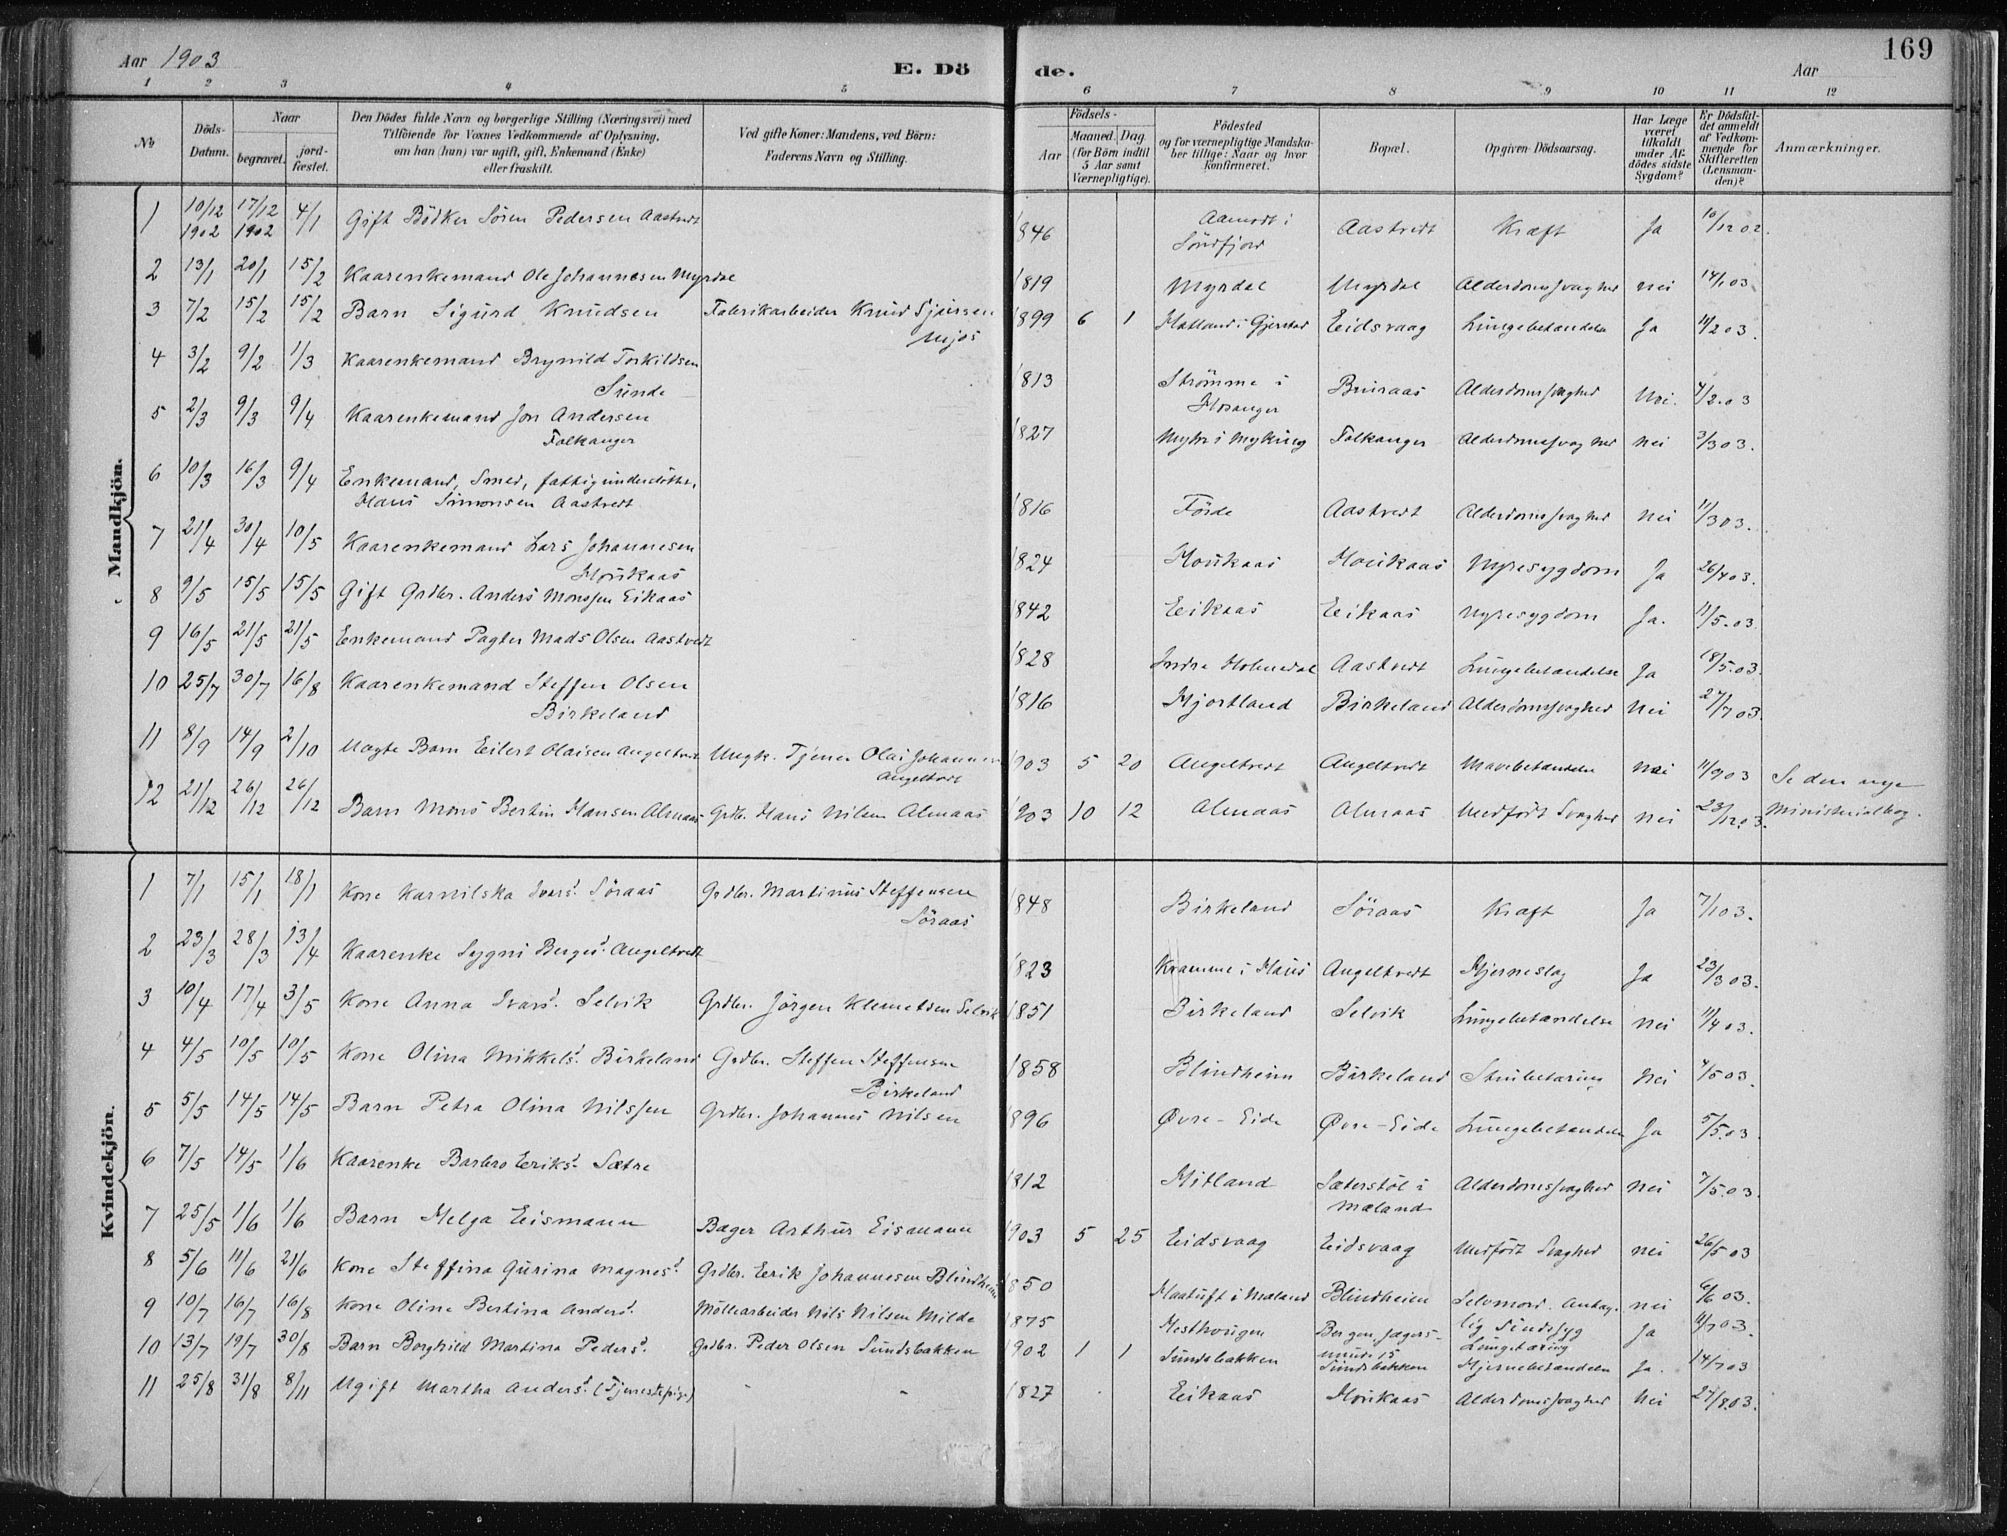 Aar 1903 E. Dö de. Aar 169
1 2 3 4 5 6 7 8 9 10 11 12
No
Döds-Datum.
Naar
begravet.
jordfæstet.
Den Dödes fulde Navn og borgerlige Stilling (Næringsvei) med
Tilföiende for Voxnes Vedkommende af Oplysning,
om han (hun) var ugift, gift, Enkemand (Enke)
eller fraskilt.
Ved gifte Koner: Mandens, ved Börn:
Faderens Navn og Stilling.
Födsels-
Aar
Maaned. Dag.
(for Börn indtil
5 Aar samt
Værnepligtige).
Födested
og for værnepligtige Mandska-
ber tillige: Naar og hvor
konfirmeret.
Bopæl.
Opgiven Dödsaarsag.
Har Læge
været
tilkaldt
under Af-
dödes sidste
Sygdom?
Er Dödsfal-
det anmeldt
af Vedkom-
mende for
Skifteretten
(Lensman-
den)?
Anmærkninger.
Mandkjön.
1 10/12 1902 17/12 1902 4/1 Gift Bödker Sören Pedersen Aastvedt 1846 Aamodt i Söndfjord Aastvedt Kræft Ja 10/12 02.
2 13/1 20/1 15/2 Kaarenkemand Ole Johannesen Myrdal 1819 Myrdal Myrdal Alderdomssvaghed Nei 14/1 03
3 7/2 15/2 15/2 Barn Sigurd Knudsen Fabrikarbeider Knud Sjursen Mjøs 1899 6 1 Hatland i Gjerstad Eidsvaag Lungebetændelse Ja 11/2 03.
4 3/2 9/2 1/3 Kaarenkemand Brynild Torkildsen Sunde 1813 Strömme i Hosanger Bruraas Alderdomssvaghed Nei. 4/2.03
5 2/3 9/3 9/4 Kaarenkemand Jon Andersen Falkanger 1827 Myhr i Myking Falkanger Alderdomssvaghed Nei 3/3 03.
6 10/3 16/3 9/4 Enkemand, Smed, fattigunderstöttet, Hans Simonsen Aastvedt 1816 Förde Aastvedt Alderdomssvaghed Nei 11/3 03.
7 21/4 30/4 10/5 Kaarenkemand Lars Johannesen Houkaas 1824 Houkaas Houkaas Nyresygdom Ja 26/4 03.
8 9/5 15/5 15/5 Gift Grdbr. Anders Monssen Eikaas 1842 Eikaas Eikaas Nyresygdom Ja. 11/5.03
9 16/5 21/5 21/5 Enkemand Pagter Mads Olsen Aastvedt 1828 Indre Holmedal Aastvedt Lungebetændelse Ja 18/5.03.
10 25/7 30/7 16/8 Kaarenkemand Steffen Olsen Birkeland 1816 Hjortland Birkeland Alderdomssvaghed Nei 27/7 03.
11 8/9 14/9 2/10 Uægte Barn Eilert Olaisen Angeltvedt Ungk. Tjener Olai Johannesen Angeltvedt 1903 5 20 Angeltvedt Angeltvedt Mavebetændelse Nei 11/9 03 Se den nye
12 21/12 26/12 26/12 Barn Mons Bertin Hansen Almaas Grdb. Hans Nilsen Almaas 1903 10 12 Almaas Almaas Medfödt Svaghed Nei 23/12 03. Ministerialbog.
Kvindekjön.
1 7/1 15/1 18/1 Kone Karnilska Ivars. Söraas Grdbr. Martinus Steffensen Söraas 1848 Birkeland Söraas Kræft Ja 7/1 03.
2 23/3 28/3 13/4 Kaarenke Sygni Berges. Angeltvedt 1823 Kvamme i Haus Angeltvedt Hjerneslag Ja 23/3 03.
3 10/4 17/4 3/5 Kone Anna Ivars. Selvik Grdbr. Jörgen Klemetsen Selvik 1851 Birkeland Selvik Lungebetændelse Nei 11/4 03.
4 4/5 10/5 10/5 Kone Olina Mikkels. Birkeland Grdbr. Steffen Steffensen Birkeland 1858 Blindheim Birkeland Nei 4/5 03.
5 5/5 14/5 14/5 Barn Petra Olina Nilssen Grdbr. Johannes Nilsen 1896 Øvre-Eide Øvre-Eide Lungebetændelse Ja 5/5.03
6 7/5 14/5 1/6 Kaarenke Barbro Eriks. Sætre 1812 Hitland Sæterstöl i Mæland Alderdomssvaghed Nei 7/5.03
7 25/5 1/6 1/6 Barn Helga Eismann Bager Arthur Eismann 1903 5 25 Eidsvaag Eidsvaag Medfödt Svaghed Nei 26/5 03
8 5/6 11/6 21/6 Kone Steffina Gurina Magnes. Grdbr. Eerik Johannesen Blindheim 1850 Haatuft i Mæland Blindheim Selvmord. Antagelig Sindssyg Nei 6/6 03.
9 10/7 16/7 16/8 Kone Oline Bertina Anders. Möllearbeider Nils Nilsen Milde 1875 Hesthougen Bergen, Jægersminde 15 Lungetæring Ja 11/7 03.
10 13/7 19/7 30/8 Barn Borghild Martina Peders. Grdbr. Peder Olsen Sundsbakken 1902 1 1 Sundsbakken Sundsbakken Hjernebetændelse Ja. 14/7 03
11 25/8 31/8 8/11 Ugift Martha Anders. (Tjenestepige) 1827 Eikaas Houkaas Alderdomssvaghed Nei 27/8.03.